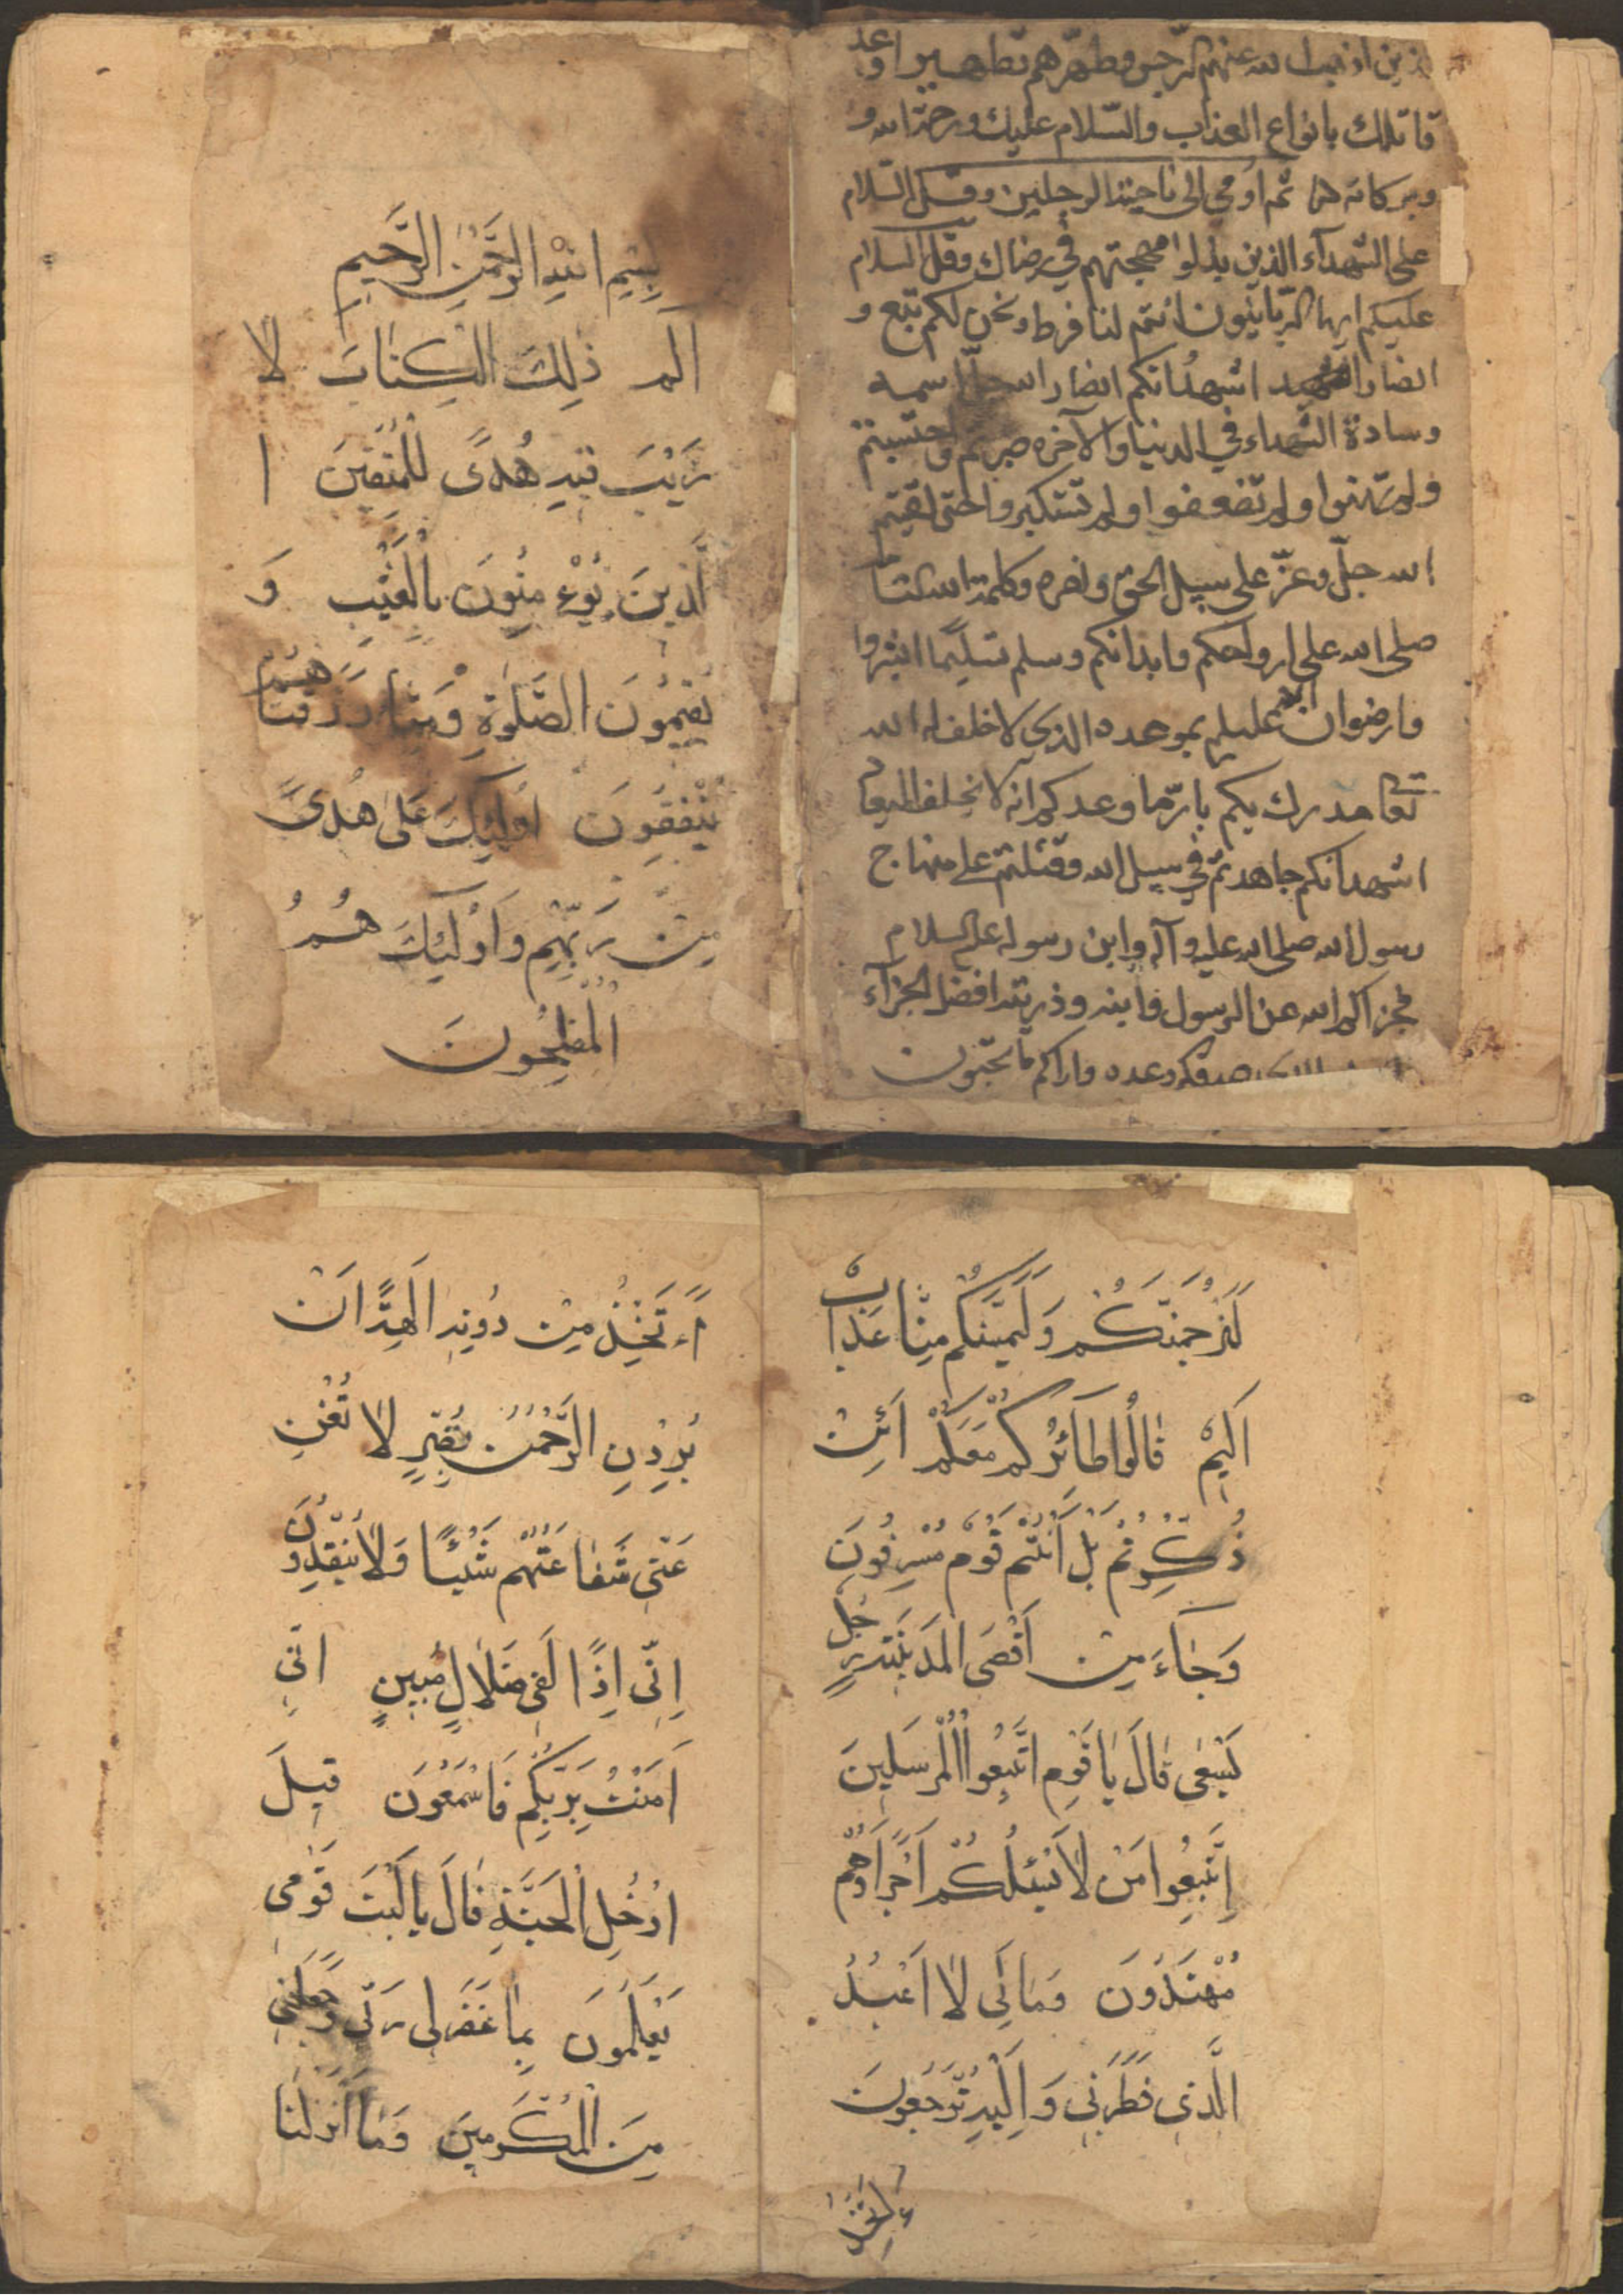 اذهب الله عنهم الرجس وطهرهم تطهيرا وعذ
قاتلك بانواع العذاب والسلام عليك ورحمة الله و
وبركاته ثم اومي الى ناحية الرجلين وقل السلام
على الشهدآء الذين بذلوا مهجتهم في رضاك وقل السلام
عليكم ايها الربانيون انتم لنا فرط ونحن لكم تبع و
انصار اشهد انكم انصار الله جل اسمه
وسادة الشهداء في الدنيا والآخره صبرتم واحتسبتم
ولم تهنوا ولم تضعفوا ولم تستكبروا حتى لقيتم
الله جل وعز على سبيل الحق ونصره وكلمة الله
صلى الله على ارواحكم وابدانكم وسلم تسليما ابشروا
وارضوان الله عليكم بموعده الذي لا خلف له الله
تعا مدرك بكم ما وعدكم انه لا يخلف الميعاد
اشهد انكم جاهدتم في سبيل الله وقتلتم على منهاج
رسول الله صلى الله عليه وآله وابن رسوله عليه السلام
فجزاكم الله عن الرسول وابنه وذريته افضل الجزآء
صدقكم وعده واراكم ما تحبون
بِسْمِ اللهِ الرَّحْمٰنِ الرَّحِيمِ
الٓمٓ ذٰلِكَ الْكِتَابَ لَا
رَيْبَ فِيهِ هُدًى لِلْمُتَّقِينَ ا
لَّذِينَ يُؤْمِنُونَ بِالْغَيْبِ وَ
يُقِيمُونَ الصَّلٰوةِ وَمِمَّا رَزَقْنَاهُمْ
يُنْفِقُونَ اُولٰئِكَ عَلٰى هُدًى
مِنْ رَبِّهِمْ وَاُولٰئِكَ هُمُ
الْمُفْلِحُونَ
لَنَرْجُمَنَّكُمْ وَلَيَمَسَّنَّكُمْ مِنَّا عَذَابٌ
اَلِيمٌ قَالُوا طَائِرُكُمْ مَعَكُمْ اَئِنْ
ذُكِّرْتُمْ بَلْ اَنْتُمْ قَوْمٌ مُسْرِفُونَ
وَجَاءَ مِنْ اَقْصَى الْمَدِينَةِ رَجُلٌ
يَسْعٰى قَالَ يَا قَوْمِ اتَّبِعُوا الْمُرْسَلِينَ
اِتَّبِعُوا مَنْ لَا يَسْئَلُكُمْ اَجْرًا وَهُمْ
مُهْتَدُونَ وَمَا لِيَ لَا اَعْبُدُ
الَّذِي فَطَرَنِي وَاِلَيْهِ تُرْجَعُونَ
ءَاَتَّخِذُ
ءَاَتَّخِذُ مِنْ دُونِهِ اٰلِهَةً اِنْ
يُرِدْنِ الرَّحْمٰنُ بِضُرٍّ لَا تُغْنِ
عَنِّي شَفَاعَتُهُمْ شَيْئًا وَلَا يُنْقِذُونَ
اِنِّي اِذًا لَفِي ضَلَالٍ مُبِينٍ اِنِّي
اٰمَنْتُ بِرَبِّكُمْ فَاسْمَعُونَ قِيلَ
ادْخُلِ الْجَنَّةَ قَالَ يَا لَيْتَ قَوْمِي
يَعْلَمُونَ بِمَا غَفَرَ لِي رَبِّي وَجَعَلَنِي
مِنَ الْمُكْرَمِينَ وَمَا اَنْزَلْنَا